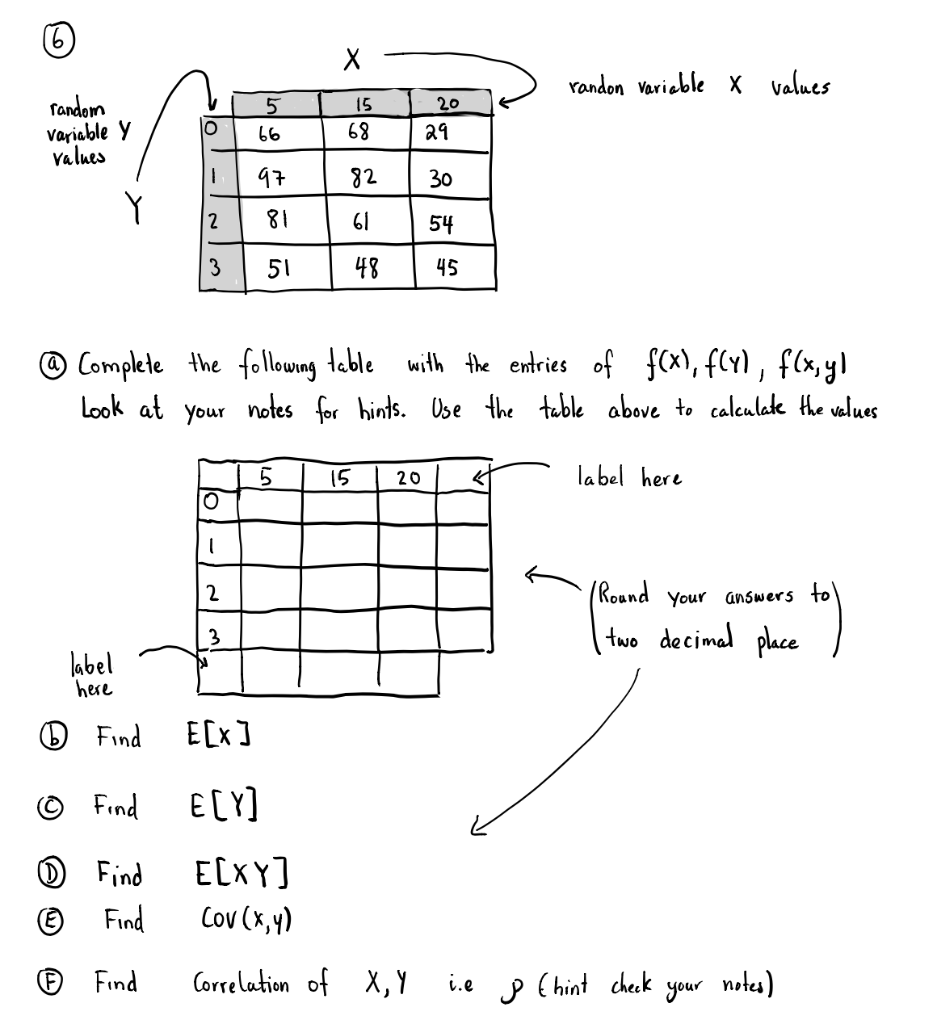 6
X
random variable X values
random
variable Y
values
Y
5 15 20
0 66 68 29
1 97 82 30
2 81 61 54
3 51 48 45
a Complete the following table with the entries of f(x), f(y), f(x,y)
Look at your notes for hints. Use the table above to calculate the values
5 15 20
label here
0
1
2
3
(Round your answers to
two decimal place)
label
here
b Find E[X]
C Find E[Y]
D Find E[XY]
E Find Cov(x,y)
F Find Correlation of X,Y i.e ρ (hint check your notes)